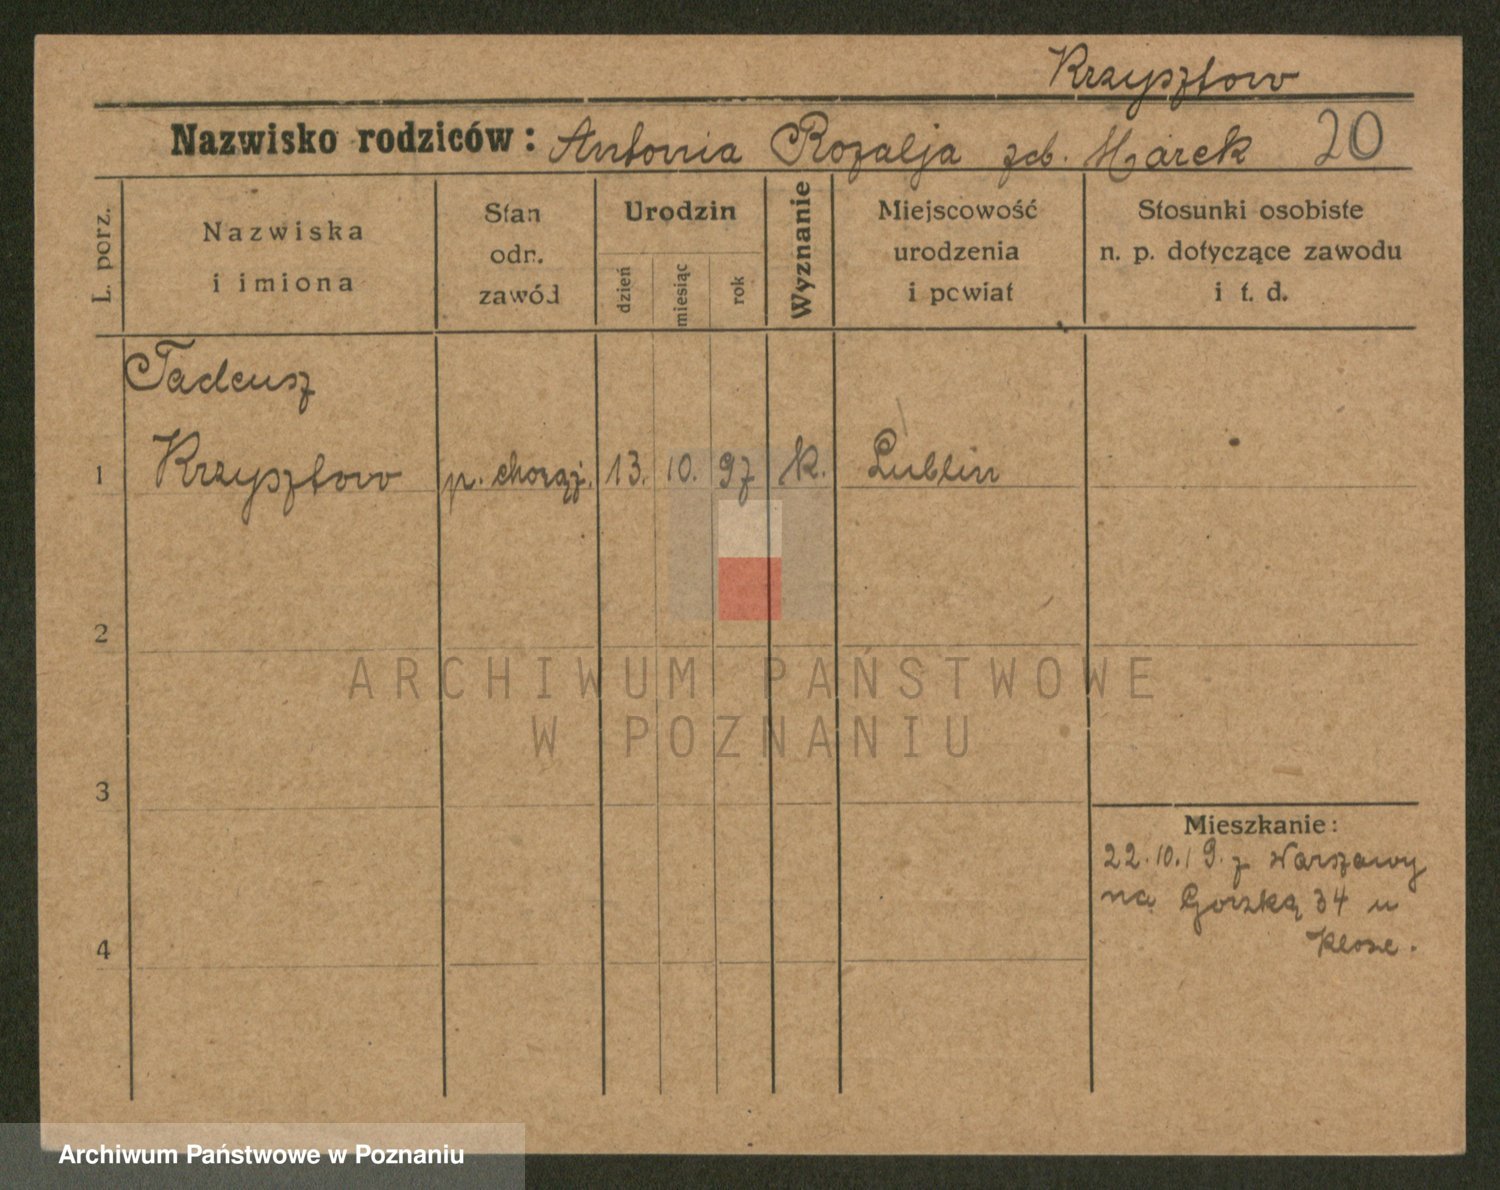 Krzysztow
Nazwisko rodziców: Antonia Rozalja zd. Marek 20
L. porz.
Nazwiska
i imiona
Stan
odn.
zawód
Urodzin
dzień
miesiąc
rok
Wyznanie
Miejscowość
urodzenia
i powiat
Stosunki osobiste
n. p. dotyczące zawodu
i t. d.
Tadeusz
1 Krzysztow p. chorąż. 13. 10. 97 k. Lublin
2
ARCHIWUM PAŃSTWOWE
W POZNANIU
3
Mieszkanie:
22.10.19. z Warszawy
na Gorzką 34 u
Klose.
4
Archiwum Państwowe w Poznaniu